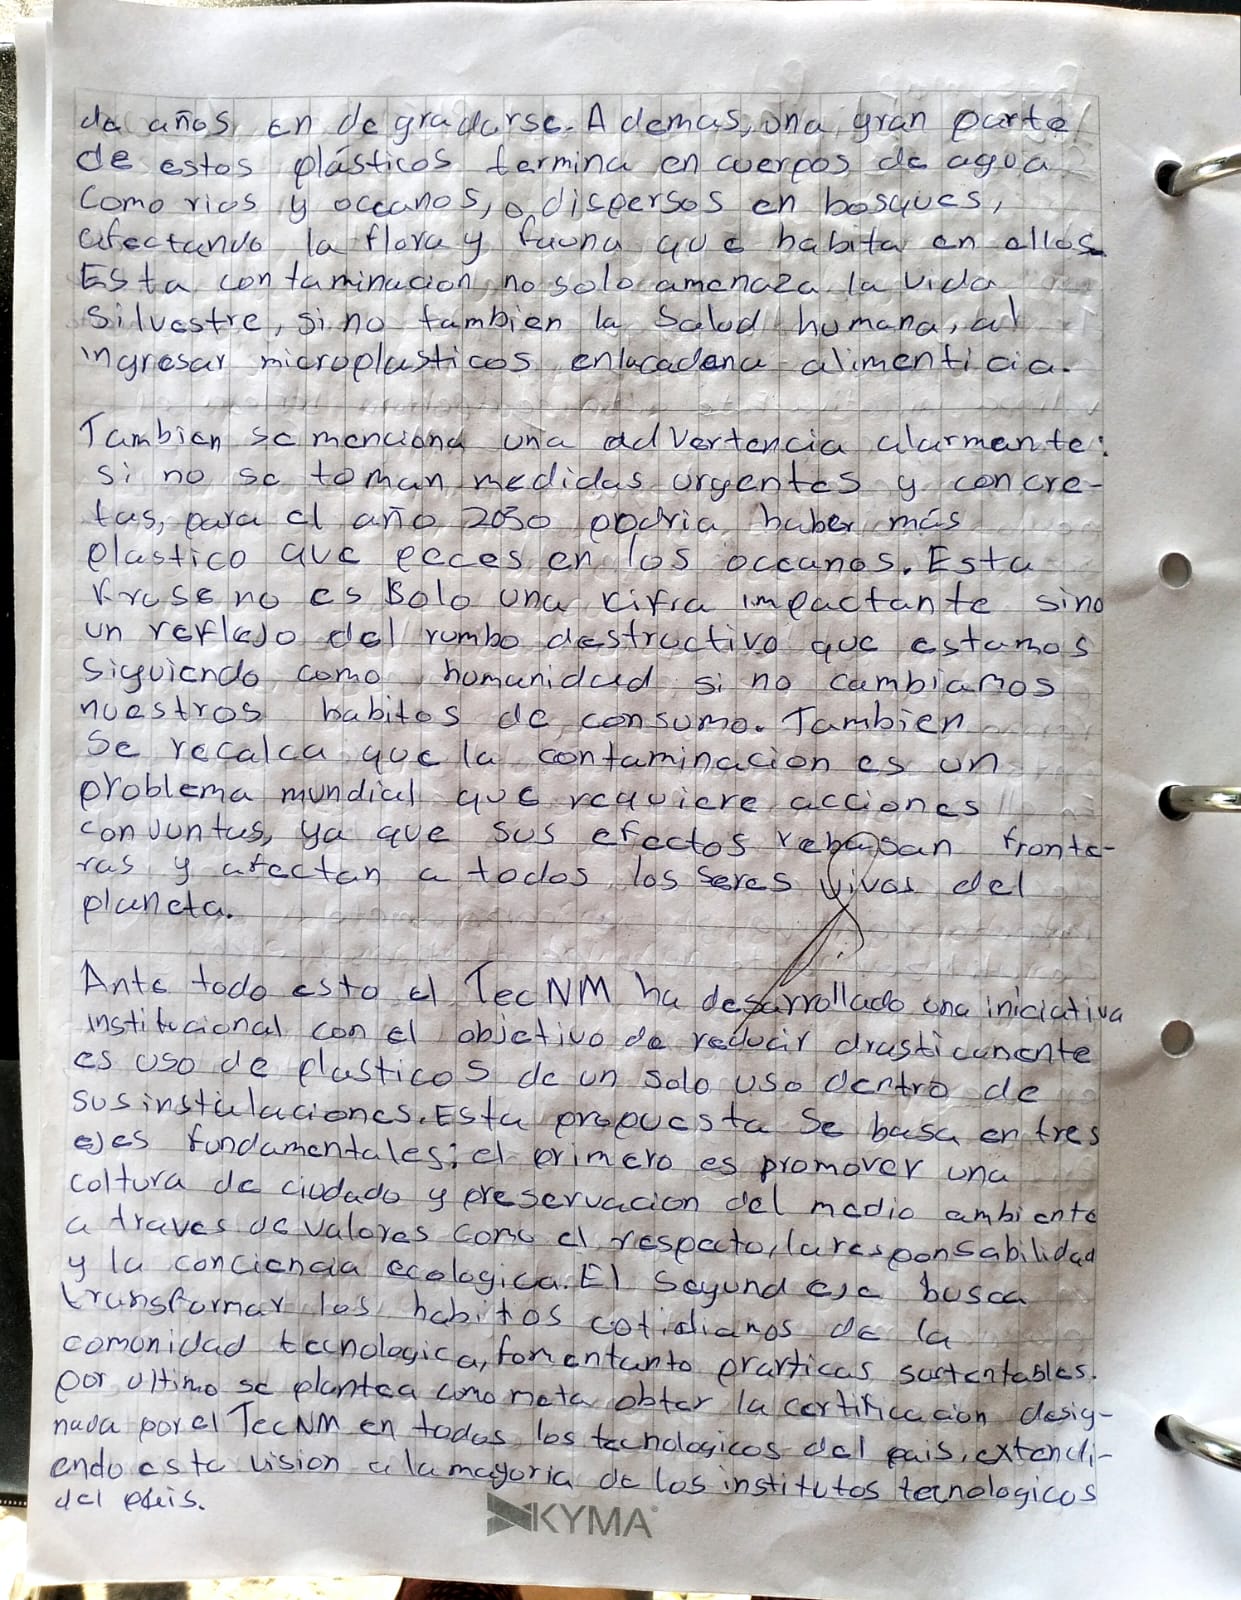 de años, en degradarse. Ademas, una gran parte
de estos plásticos termina en cuerpos de agua
como rios y oceanos, o dispersos en bosques,
afectando la flora y fauna que habita en ellos.
Esta contaminacion no solo amenaza la vida
silvestre, sino tambien la salud humana, al
ingresar microplasticos en la cadena alimenticia.
Tambien se menciona una advertencia alarmante:
si no se toman medidas urgentes y concre-
tas, para el año 2050 podria haber más
plastico que peces en los oceanos. Esta
frase no es solo una cifra impactante sino
un reflejo del rumbo destructivo que estamos
siguiendo como humanidad si no cambiamos
nuestros habitos de consumo. Tambien
se recalca que la contaminacion es un
problema mundial que requiere acciones
conjuntas, ya que sus efectos rebasan fronte-
ras y afectan a todos los seres vivos del
planeta.
Ante todo esto el TecNM ha desarrollado una iniciativa
institucional con el objetivo de reducir drasticamente
es uso de plasticos de un solo uso dentro de
sus instalaciones. Esta propuesta se basa en tres
ejes fundamentales; el primero es promover una
coltura de ciudado y preservacion del medio ambiente
a traves de valores como el respecto, la responsabilidad
y la conciencia ecologica. El segund eje busca
transformar los habitos cotidianos de la
comunidad tecnologica, fomentanto practicas sustentables.
por ultimo se plantea como meta obter la certificacion desig-
nada por el TecNM en todos los tecnologicos del pais, extendi-
endo esta vision a la mayoria de los institutos tecnologicos
del pais.
KYMA